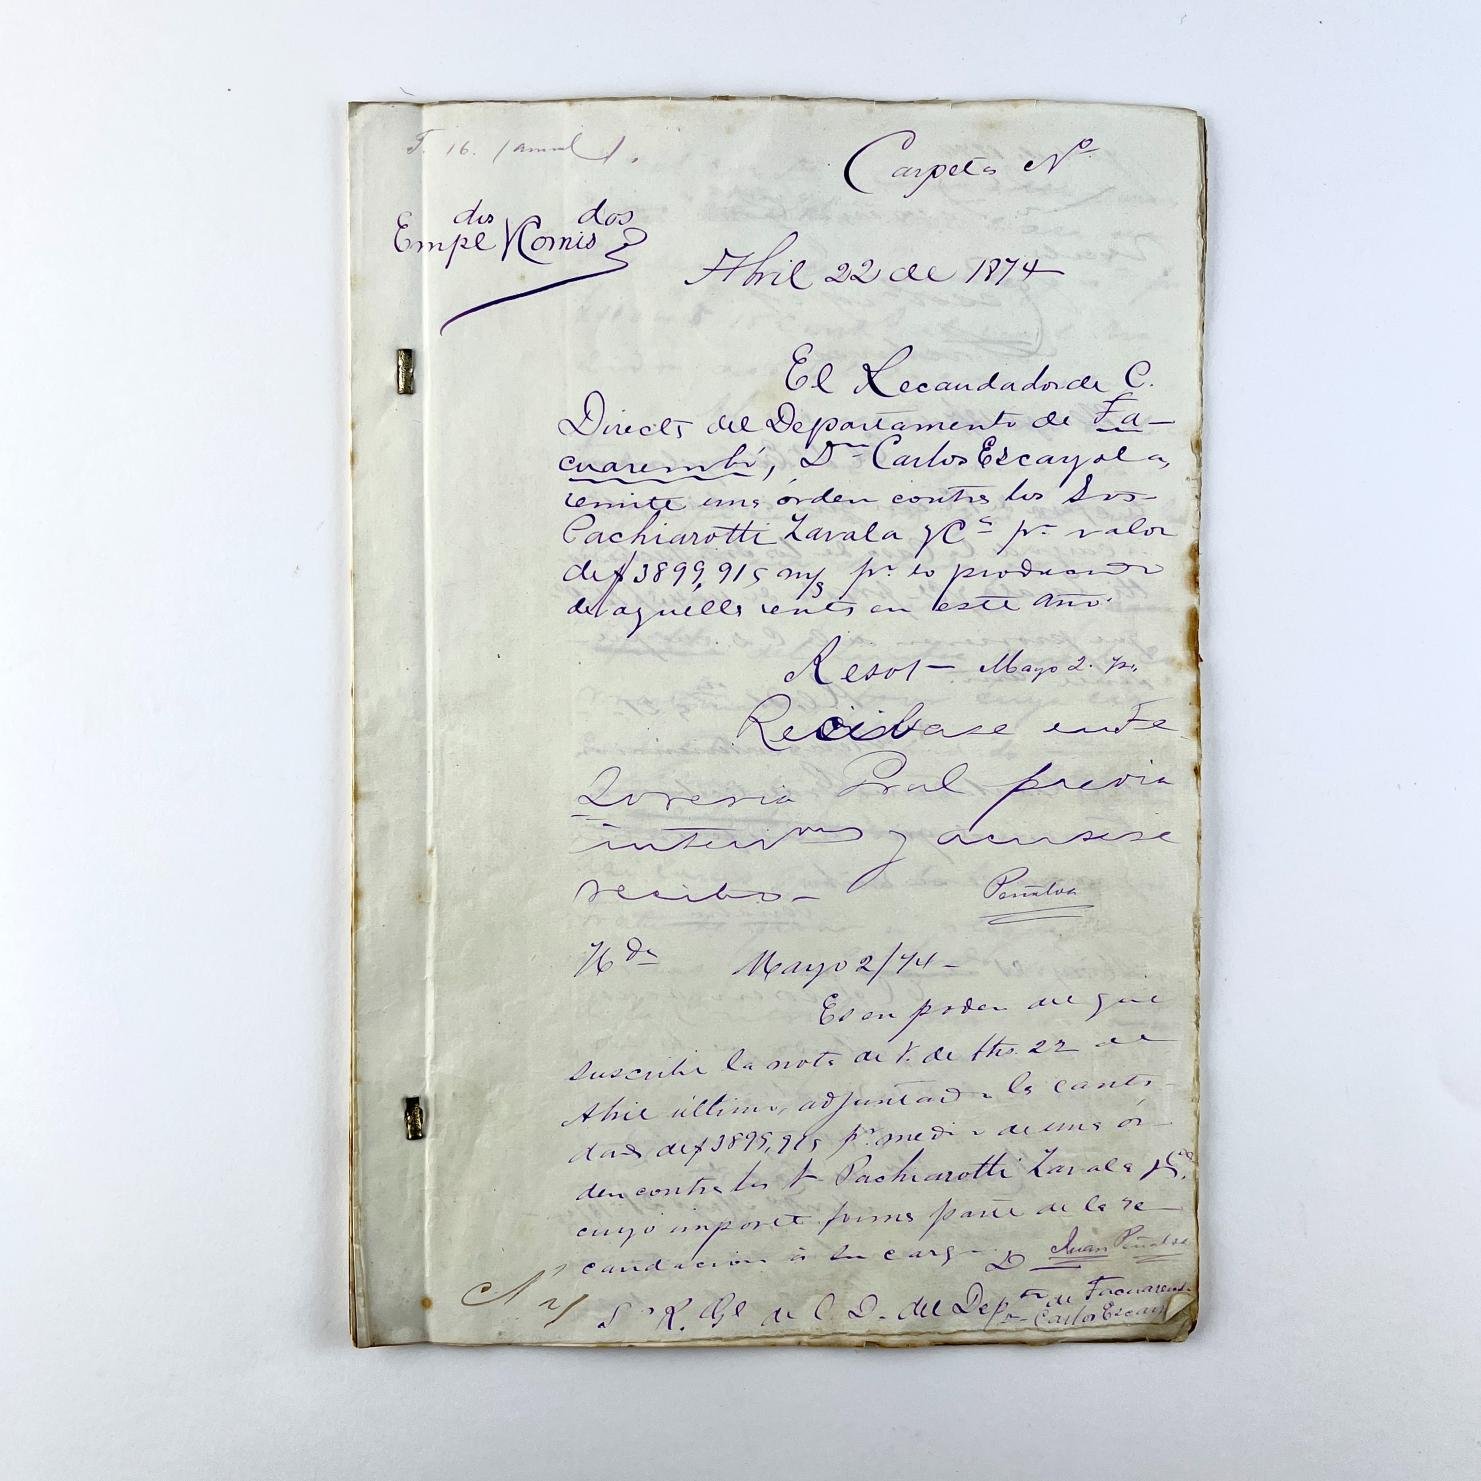 T. 16.
Carpeta Nº
Empl.dos y Comis.dos
Abril 22 de 1874
El Recaudador de C.
Directs del Departamento de Ta-
cuarembó, Dn Carlos Escayola,
remite una órden contra los Srs
Pachiarotti Zavala y Ca pr valor
de $ 3899,915 m/s pr lo producido
de aquella renta en este año.
Resol- Mayo 2.
Recibase en Te
soreria Gral previa
interv.on y acusese
recibo- Peñalva
Mayo 2/74-
Es en poder del que
suscribe la nota de V. de fha. 22 de
Abril último, adjuntando la canti-
dad de $ 3899,915 pr medio de una ór-
den contra los Pachiarotti Zavala y Ca.
cuyo importe forma parte de la re-
caudacion á su cargo. Juan Peñalva
Sr R. Gl de C. D. del Depto de Tacuaremb
Dn Carlos Escay